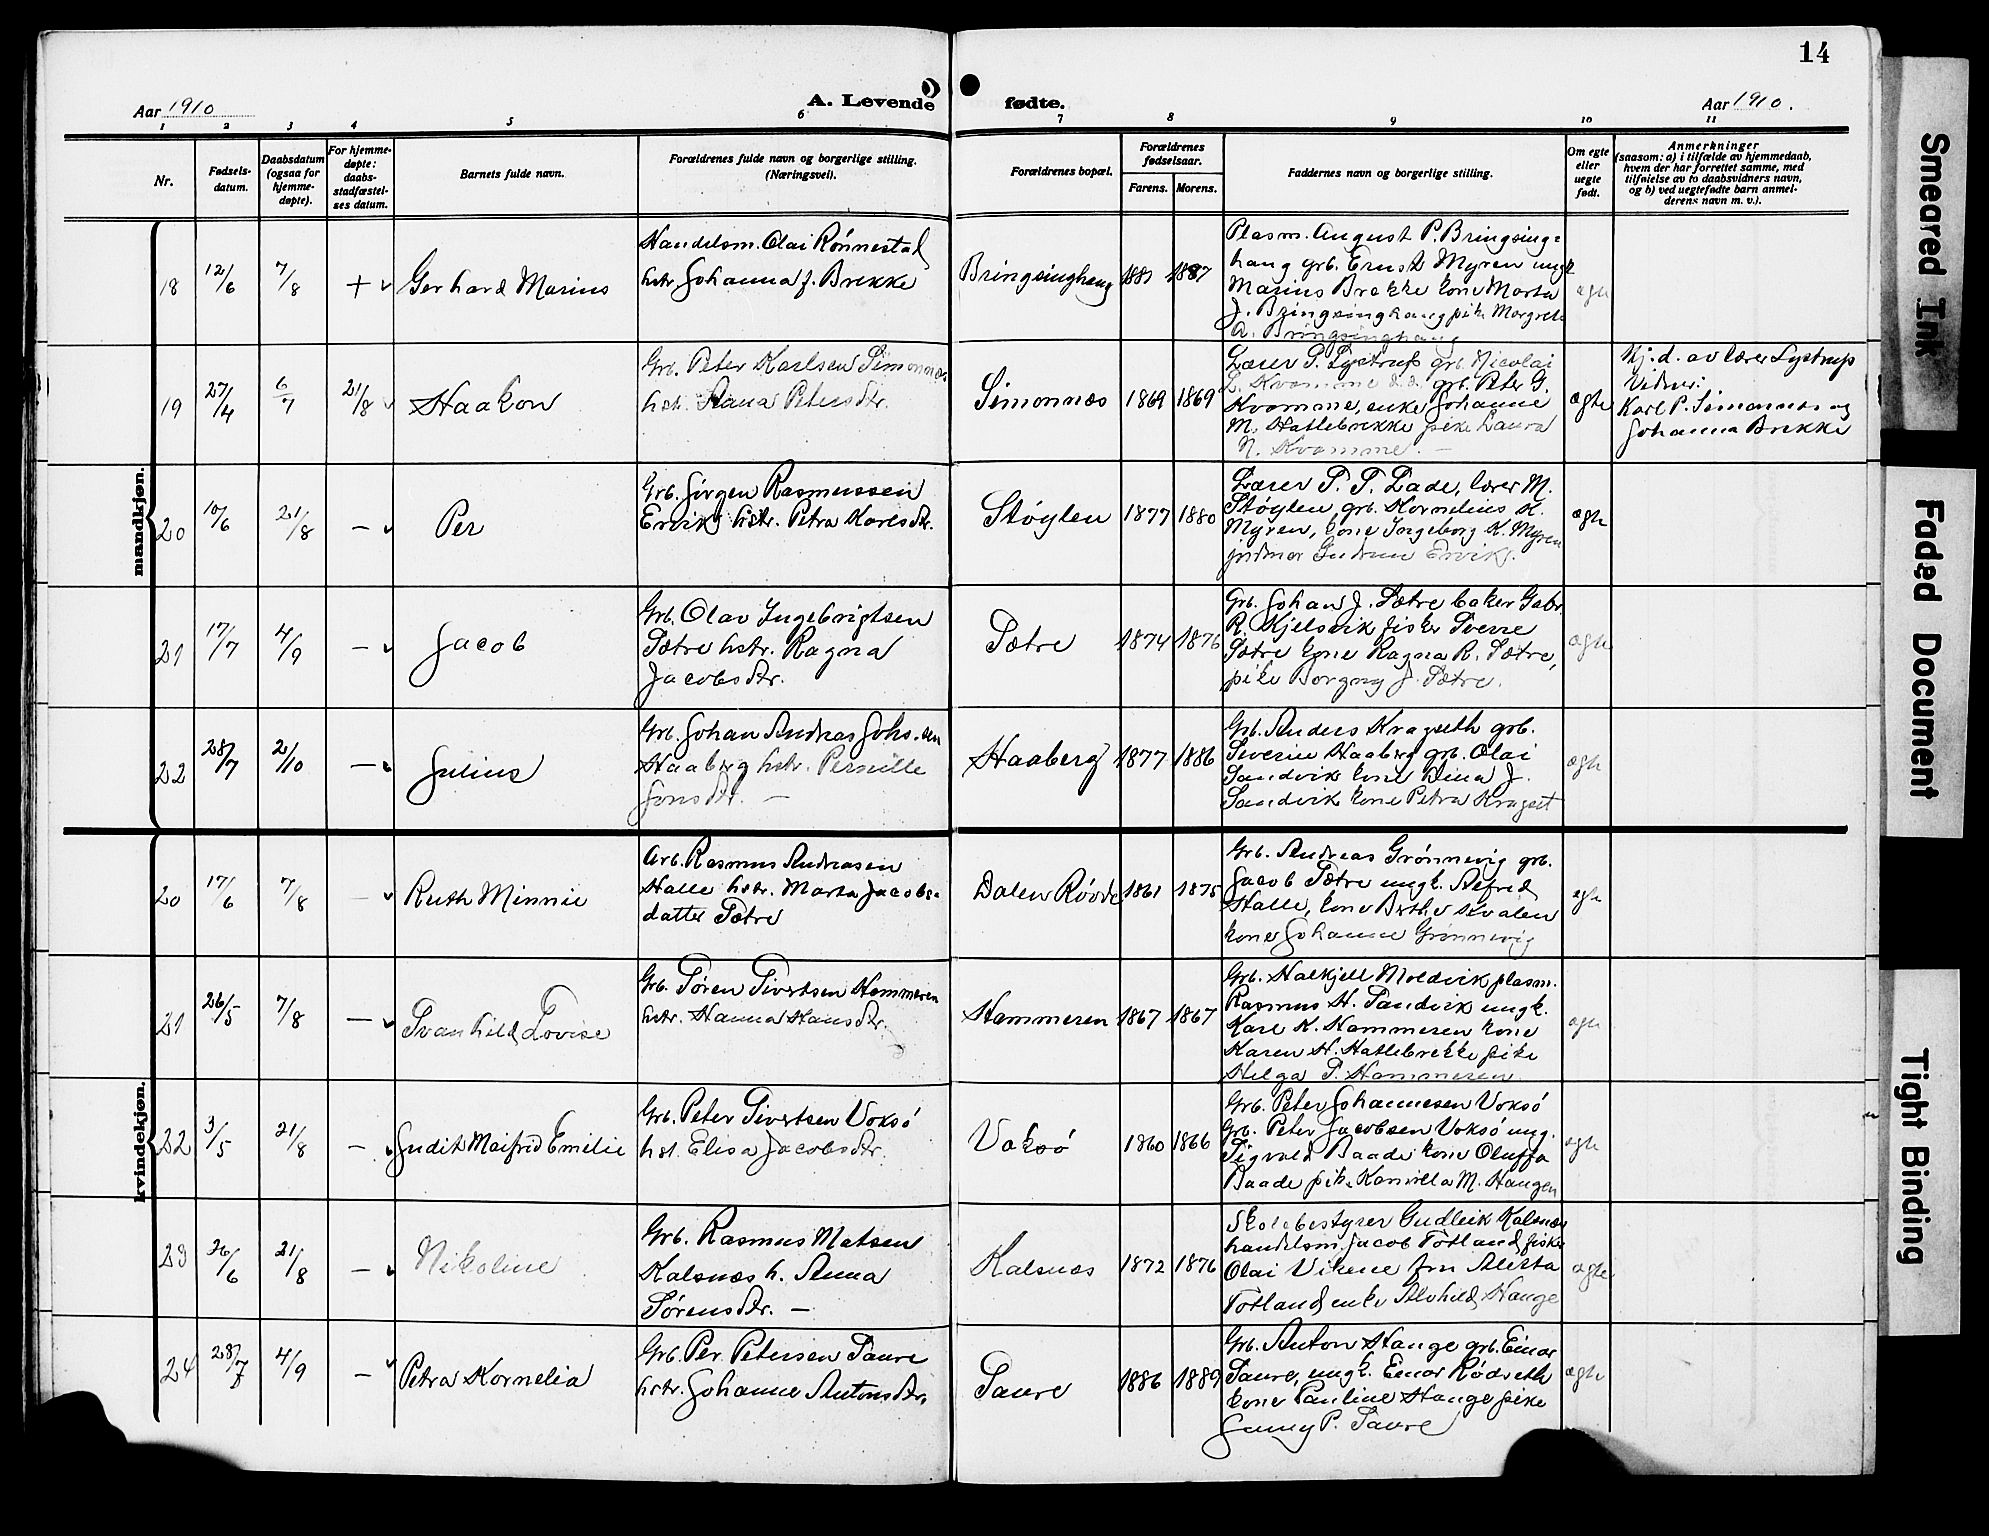 14
Aar 1910
A. Levende fødte.
Aar 1910.
1 2 3 4 5 6 7 8 9 10 11
Nr.
Fødsels-
datum.
Daabsdatum
(ogsaa for
hjemme-
døpte).
For hjemme-
døpte:
daabs-
stadfæstel-
ses datum.
Barnets fulde navn.
Forældrenes fulde navn og borgerlige stilling.
(Næringsvei).
Forældrenes bopæl.
Forældrenes
fødselsaar.
Farens. Morens.
Faddernes navn og borgerlige stilling.
Om egte
eller
uegte
født.
Anmerkninger
(saasom: a) i tilfælde av hjemmedaab,
hvem der har forrettet samme, med
tilføielse av to daabsvidners navn,
og b) ved uegtefødte barn anmel-
derens navn m. v.).
mandkjøn.
18 12/6 7/8 + Gerhard Marius
Handelsm. Olai Rönnestad
hstr. Johanna f. Brekke
Bringsinghaug 1887
Plasm. August P. Bringsing-
haug grb. Ernst Myren ungk
Marius Brekke kone Marta
J. Bringsinghaug pike Margrete
A. Bringsinghaug
ægte
19 27/4 6/7 21/8 Haakon
Grb. Peter Karlsen Simonnæs
hst. Hana Petersdtr.
Simonnæs 1869 1869
Lærer P. Lystrup grb. Nicolai
L. Kvamme d.s. grb. Peter G.
Kvamme, enke Johanne
M. Hatlebrekke pike Laura
N. Kvamme. —
ægte
Hj. d. av lærer Lystrup
Vidner:
Karl P. Simonnæs og
Johanna Brekke
20 10/6 21/8 — Per
Grb. Jörgen Rasmussen
Ervik hstr. Petra Karlsdtr.
Støylen 1877 1880
Lærer P. P. Lade, lærer M.
Støylen grb. Kornelius K.
Myren, kone Ingeborg K. Myren
jordmor Gudrun Ervik.
ægte
21 17/7 4/9 — Jacob
Grb. Olav Ingebrigtsen
Sætre hstr. Ragna
Jacobsdtr.
Sætre 1874 1876
Grb. Johan J. Sætre baker Gabr.
R. Kjelsvik fisker Sverre
Sætre kone Ragna R. Sætre,
pike Borgny J. Sætre.
ægte
22 28/7 2/10 — Julius
Grb. Johan Andreas Johs.sen
Haaberg hstr. Pernille
Jonsdtr. —
Haaberg 1877 1886
Grb. Anders Kragseth grb.
Severin Haaberg grb. Olai
Sandvik kone Dina J.
Sandvik kone Petra Kragset
ægte
kvindekjøn.
20 17/6 7/8 — Ruth Minnie
Arb. Rasmus Andreasen
Halle hstr. Marta Jacobs-
datter Sætre
Dalen Røvde 1861 1875
Grb. Andreas Grönnevig grb.
Jacob Sætre ungk. Alfred
Halle, kone Berthe Kvalen
kone Johanne Grönnevig
ægte
21 26/5 7/8 — Svanhild Lovise
Grb. Sören Sivertsen Hammeren
hstr. Hanna Hansdtr.
Hammeren 1867 1867
Grb. Halkjell Moldvik plasm.
Rasmus H. Sandvik ungk.
Karl K. Hammeren kone
Karen H. Hatlebrekke pike
Helga S. Hammeren
ægte
22 3/5 21/8 — Judith Maifrid Emilie
Grb. Peter Sivertsen Voksö
hst. Elisa Jacobsdtr.
Voksö 1860 1866
Grb. Peter Johannesen Voksö
Grb. Peter Jacobsen Voksö ung.
Sigvald Baade kone Oluffa
Baade pike Kamilla M. Haugen
ægte
23 26/6 21/8 — Nikoline
Grb. Rasmus Matsen
Kalsnæs h. Anna
Sörensdtr. —
Kalsnæs 1872 1876
Skolebestyrer Gudleik Kalsnæs
handelsm. Jacob Totland fisker
Olai Vikene fru Aletta
Totland enke Alvhild Hauge
ægte
24 28/7 4/9 — Petra Kornelia
Grb. Per Petersen Saure
hstr. Johanne Antonsdtr.
Saure 1886 1889
Grb. Anton Hauge grb. Einar
Saure, ungk. Einar Rødseth
kone Pauline Hauge pike
Jenny P. Saure
ægte
Smeared Ink
Faded Document
Tight Binding